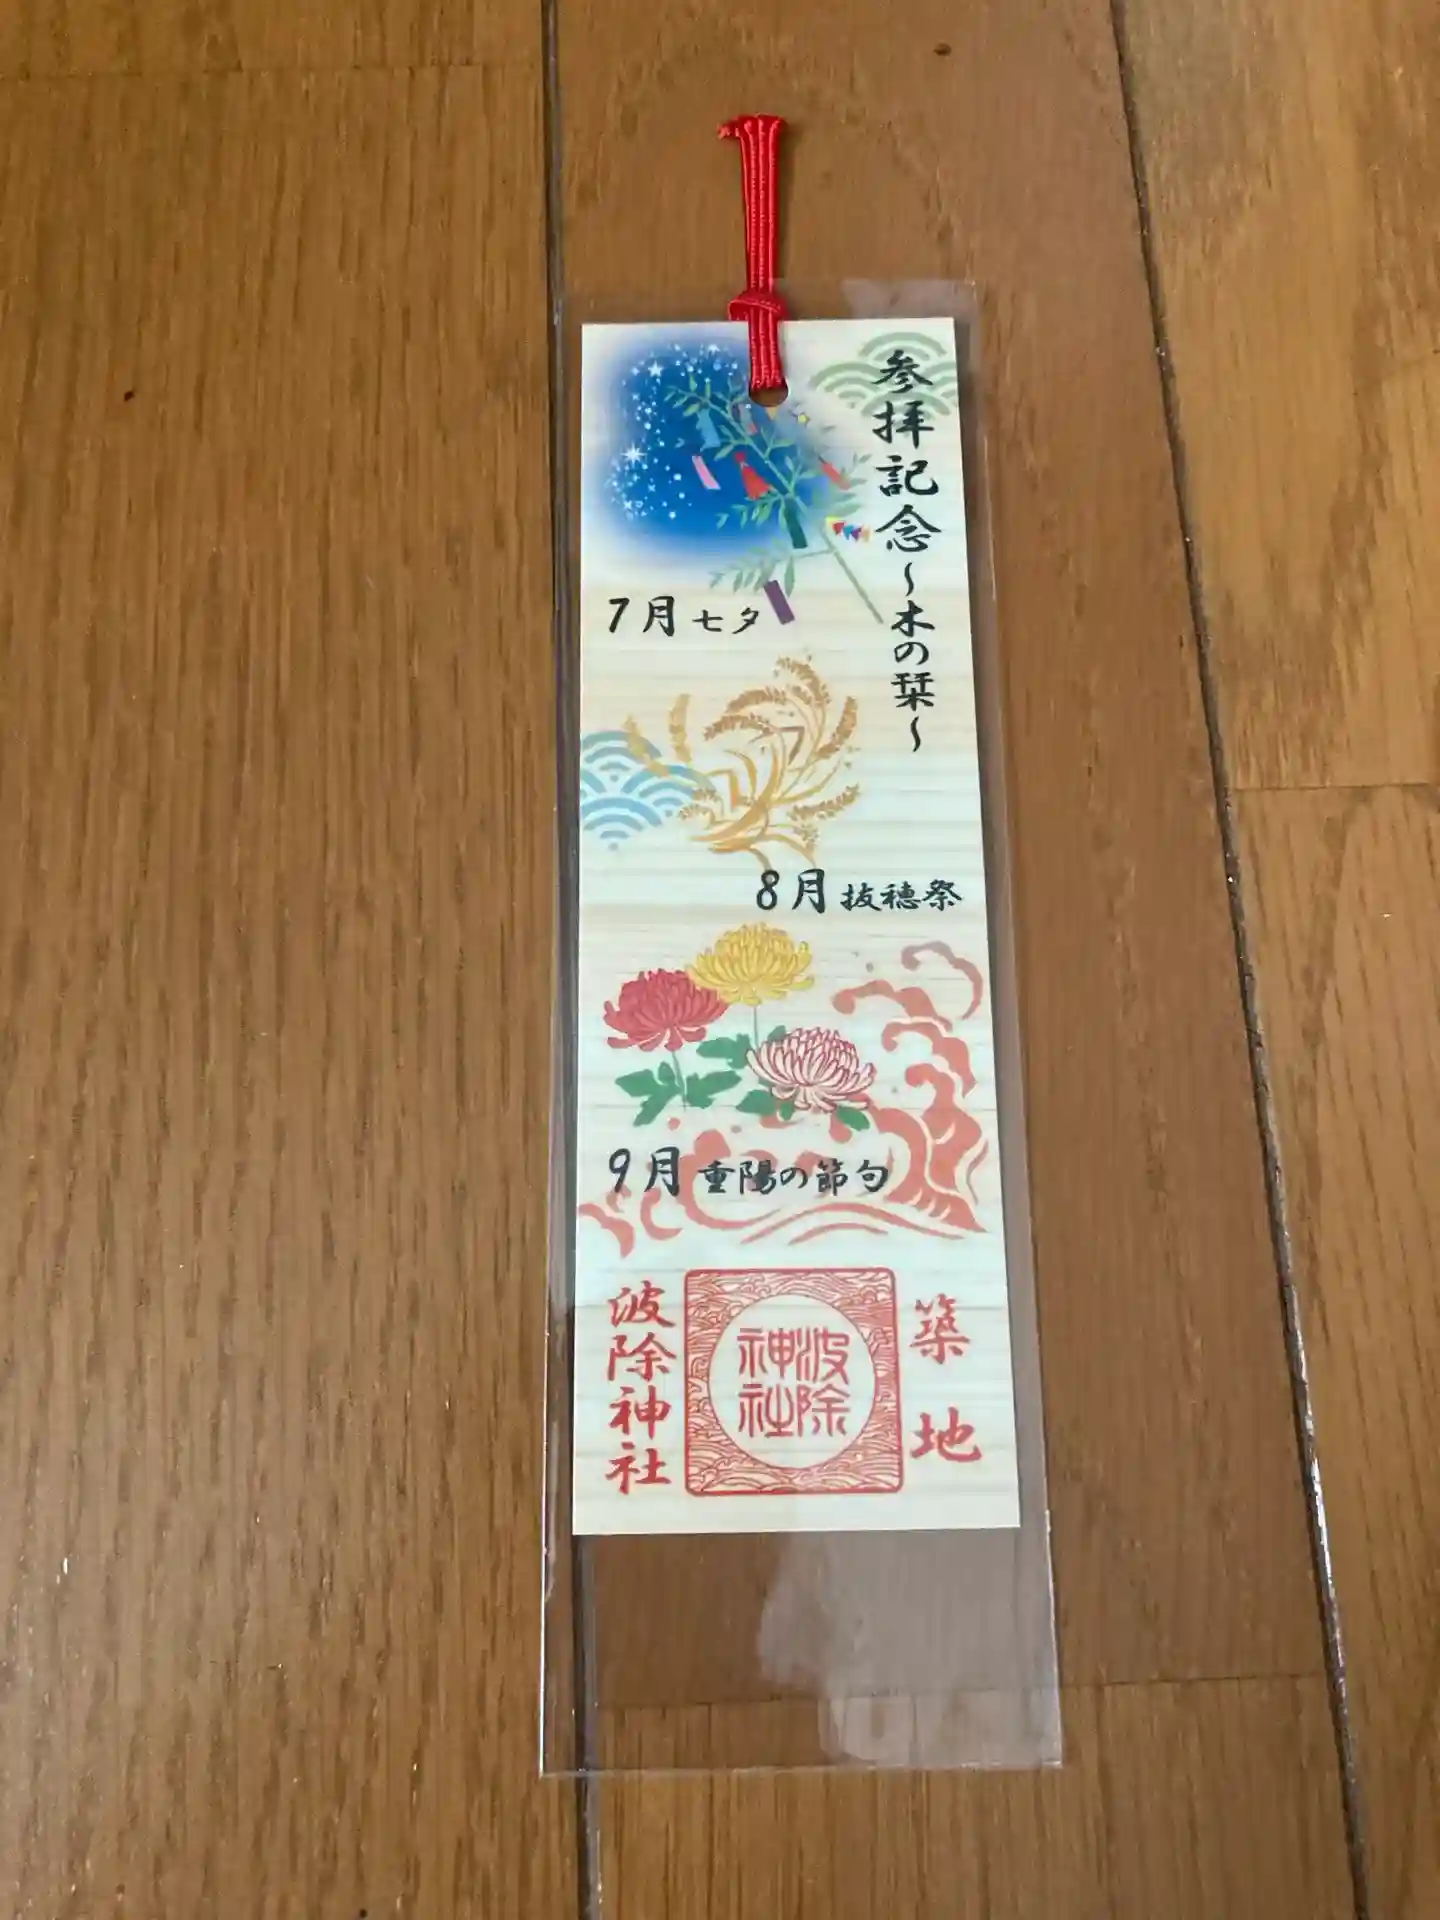 参拝記念～木の栞～
7月 七夕
8月 抜穂祭
9月 重陽の節句
築地
波除神社
波除神社